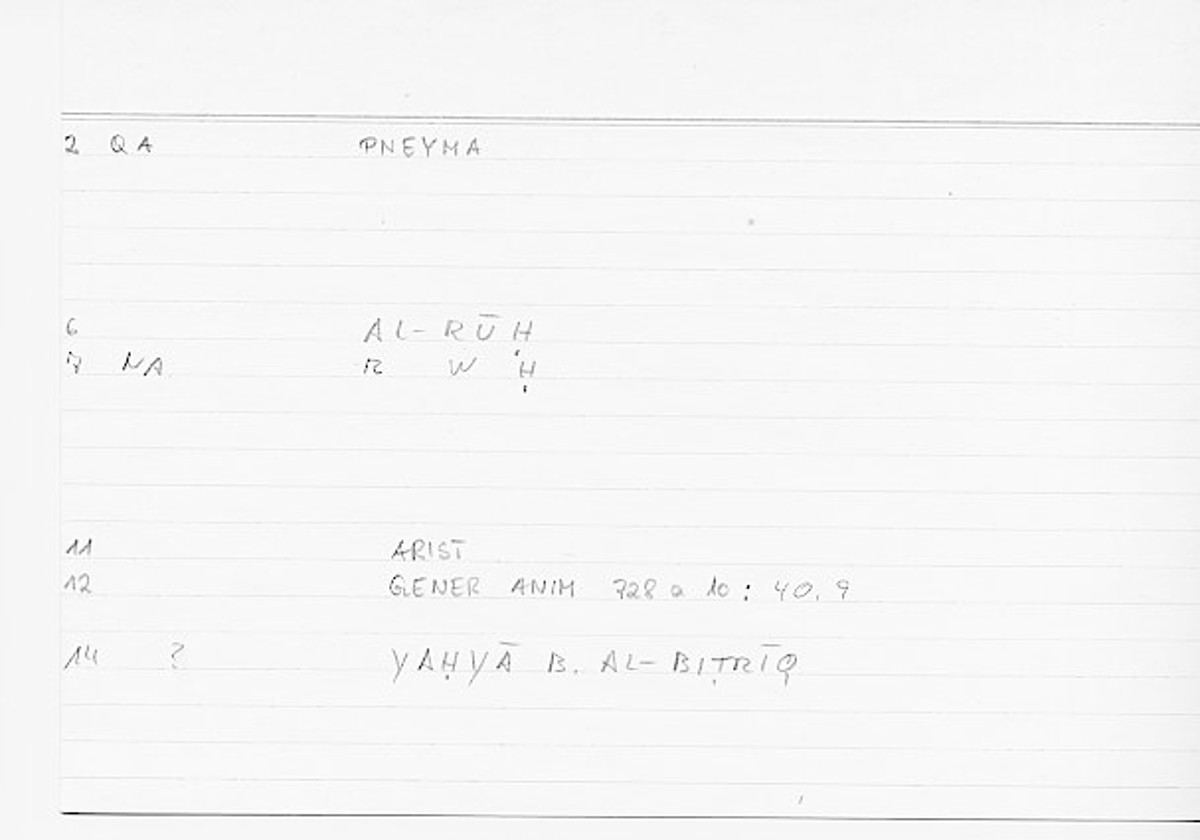 2 QA PNEYMA
6 AL-RŪḤ
7 NA R W Ḥ
11 ARIST
12 GENER ANIM 728 a 10 : 40.9
14 ? YAḤYĀ B. AL-BIṬRĪQ